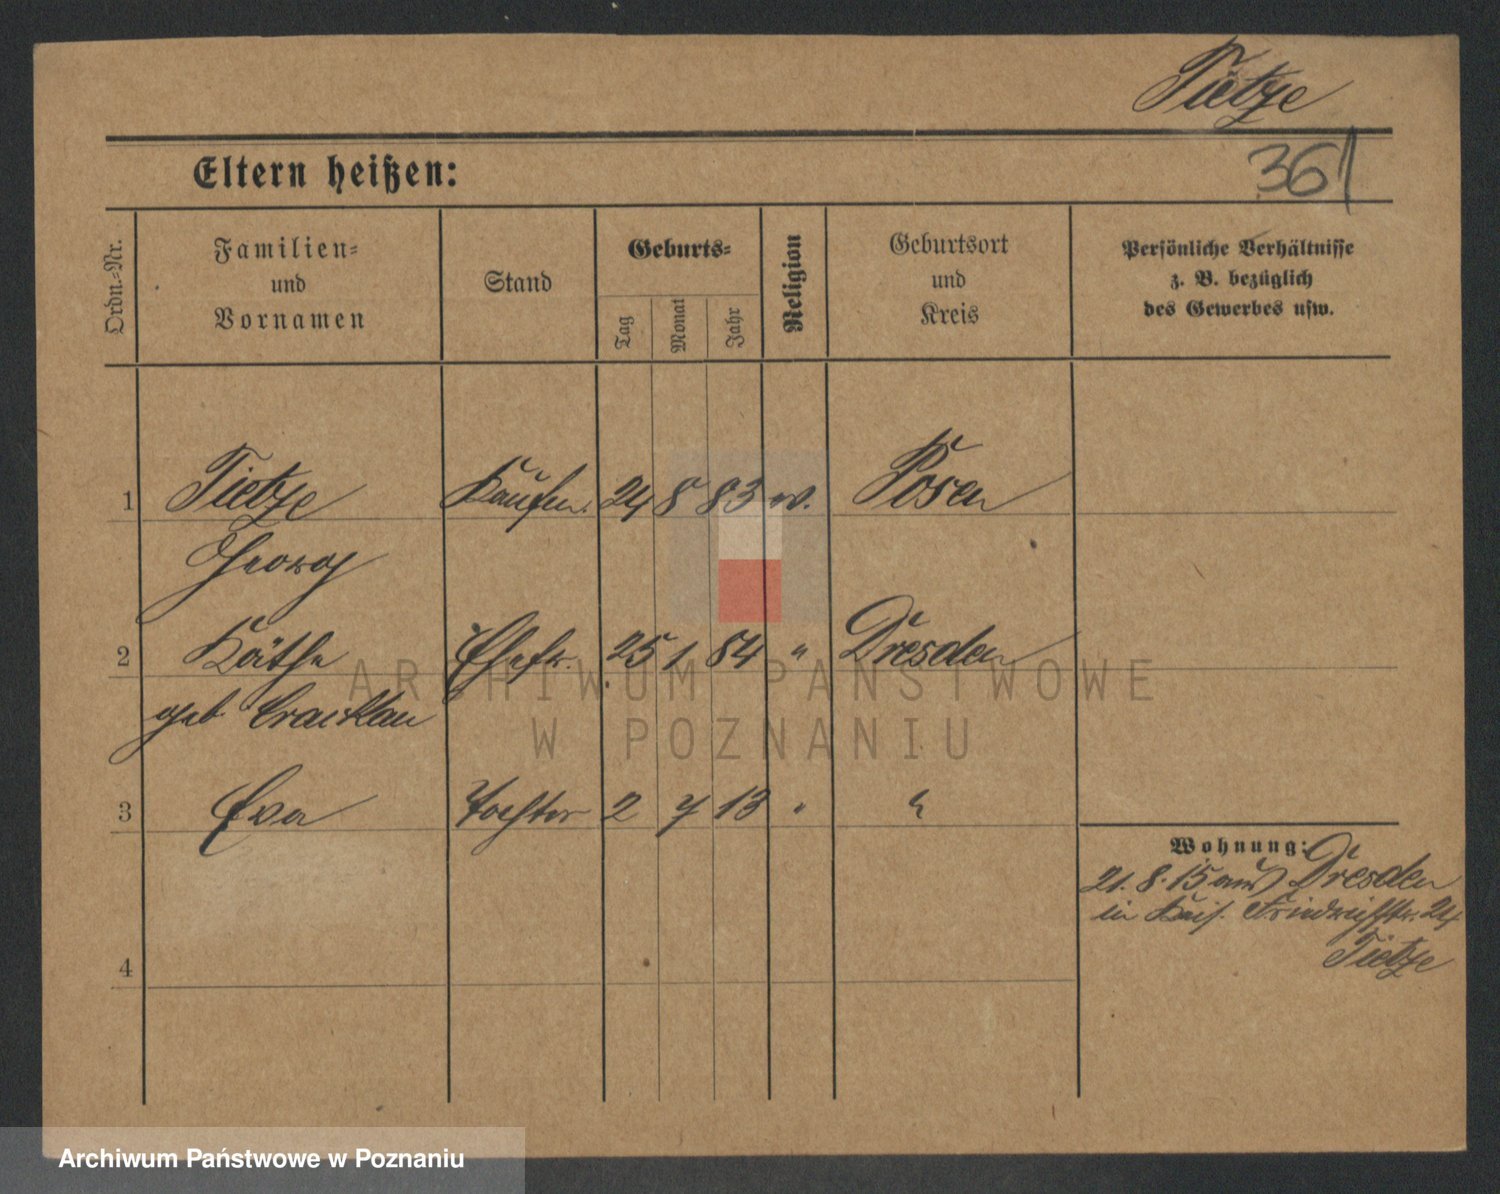 Tietze
Eltern heißen:
361
Ordn.-Nr.
Familien-
und
Vornamen
Stand
Geburts-
Tag
Monat
Jahr
Religion
Geburtsort
und
Kreis
Persönliche Verhältnisse
z. B. bezüglich
des Gewerbes usw.
1 Tietze Kaufm. 24 8 83 ev. Posen
Georg
2 Käthe Ehefr. 25 1 84 " Dresden
geb Cracklau
3 Eva Tochter 2 7 13 " "
Wohnung:
21. 8. 15 aus Dresden
in Kais. Friedrichstr. 24
Tietze
4
ARCHIWUM PAŃSTWOWE
W POZNANIU
Archiwum Państwowe w Poznaniu